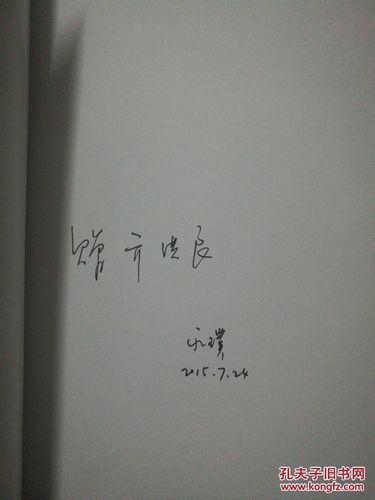 赠 亓洪良
璞
2015.7.24
孔夫子旧书网
www.kongfz.com